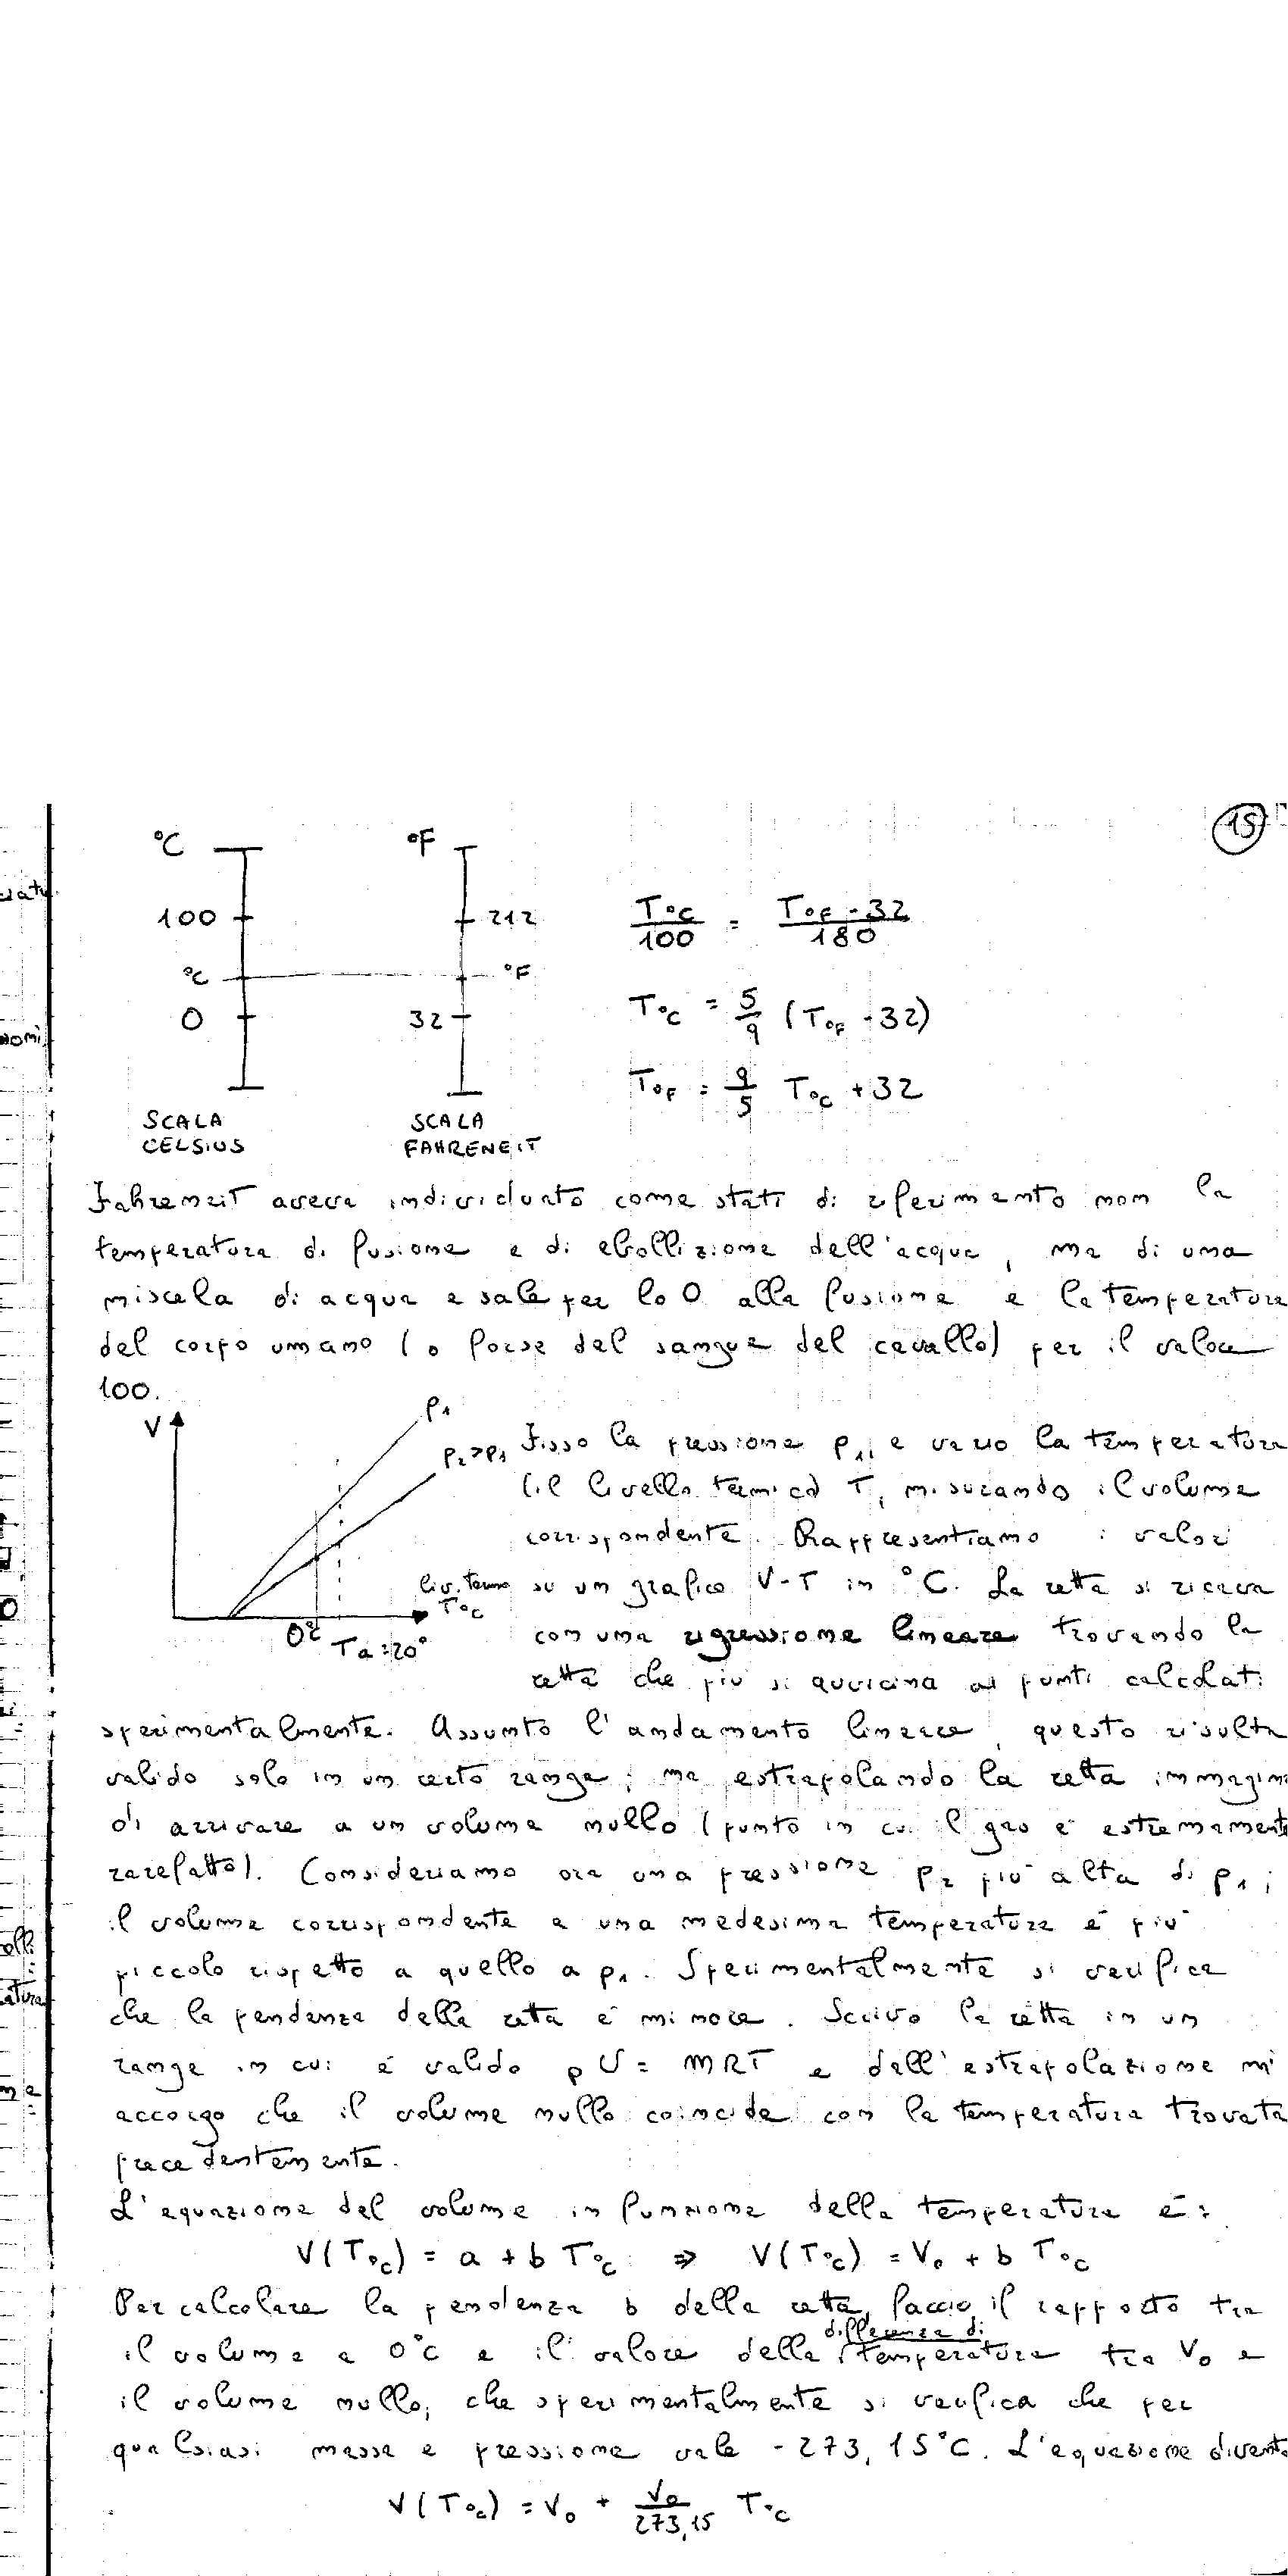 15
°C
°F
100
212
°C
°F
0
32
SCALA CELSIUS
SCALA FAHRENEIT
T°C / 100 = T°F - 32 / 180
T°C = 5/9 (T°F - 32)
T°F = 9/5 T°C + 32
Fahreneit aveva individuato come stati di riferimento non la
temperatura di fusione e di ebollizione dell'acqua, ma di una
miscela di acqua e sale per lo 0 alla fusione e la temperatura
del corpo umano (o forse del sangue del cavallo) per il valore
100.
V
p1
p2>p1
liv. term
T°C
0°C
Ta=20°
Fisso la pressione p1, e vario la temperatura
(il livello termico) T, misurando il volume
corrispondente. Rappresentiamo i valori
su un grafico V-T in °C. La retta si ricava
con una regressione lineare trovando la
retta che più si avvicina ai punti calcolati
sperimentalmente. Assunto l'andamento lineare, questo risulta
valido solo in un certo range; ma estrapolando la retta immagin
di arrivare a un volume nullo (punto in cui il gas è estremamente
rarefatto). Consideriamo ora una pressione p2 più alta di p1;
il volume corrispondente a una medesima temperatura è più
piccolo rispetto a quello a p1. Sperimentalmente si verifica
che la pendenza della retta è minore. Scrivo la retta in un
range in cui è valido pV = MRT e dall'estrapolazione mi
accorgo che il volume nullo coincide con la temperatura trovata
precedentemente.
L'equazione del volume in funzione della temperatura è:
V(T°C) = a + b T°C ⇒ V(T°C) = V0 + b T°C
Per calcolare la pendenza b della retta, faccio il rapporto tra
il volume a 0°C e il valore della differenza di temperatura tra V0 e
il volume nullo, che sperimentalmente si verifica che per
qualsiasi massa e pressione vale -273,15°C. L'equazione diventa
V(T°C) = V0 + V0/273,15 T°C